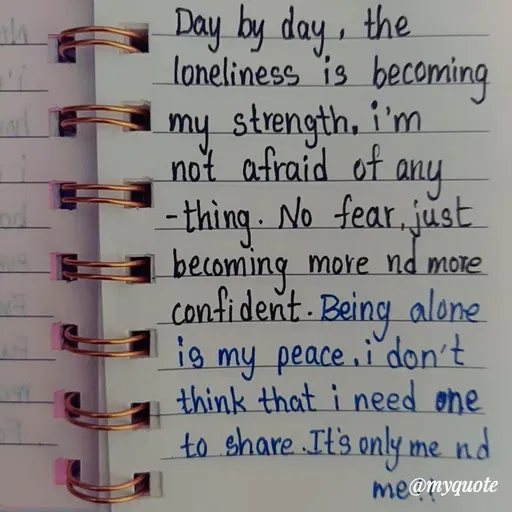 Day by day, the
loneliness is becoming
my strength, i'm
not afraid of any
-thing. No fear, just
becoming more nd more
confident. Being alone
is my peace, i don't
think that i need one
to share. It's only me nd
me..
@myquote